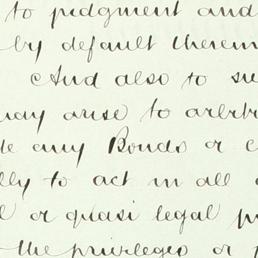 to judgment and
by default therein
And also to su
may arise to arbitr
de any Bonds or c
lly to act in all
l or quasi legal p
the privileges or